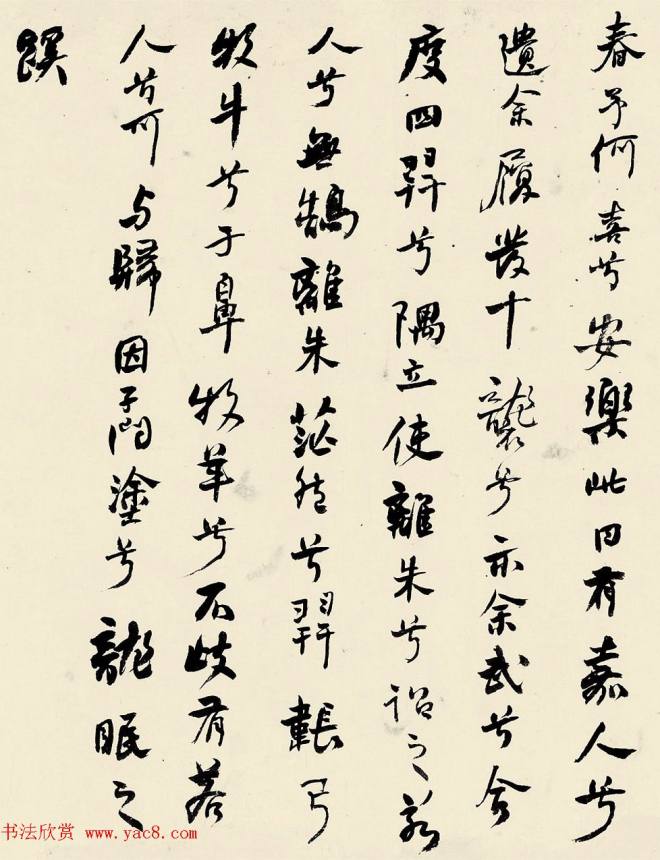 春予何喜兮安樂此日有嘉人兮
遺余履發十襲兮示余武兮舍
度四羿兮隅立使離朱兮詔之若
人兮無鵠離朱茫然兮羿韔弓
牧牛兮于鼻牧羊兮不歧有若
人兮何與歸因子問塗兮龍眠之
蹊
书法欣赏 www.yac8.com